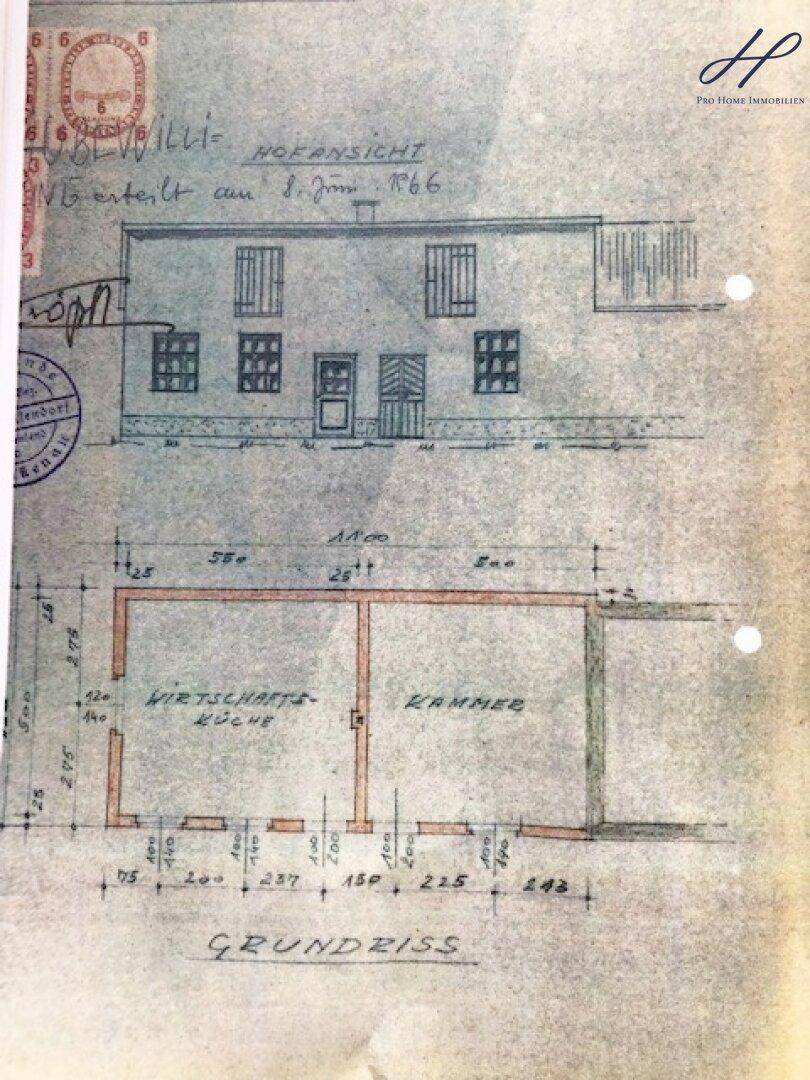 6 6 6
PRO HOME IMMOBILIEN
6
6 6 6
WILLI=
HOFANSICHT
3
NG erteilt am 8. Juni 1966
3
1100
550 500
25 25
25
275
120
140
500
275
25
WIRTSCHAFTS-
KÜCHE
KAMMER
100 140 100 140 100 200 100 200 100 140
75 200 237 150 225 243
GRUNDRISS